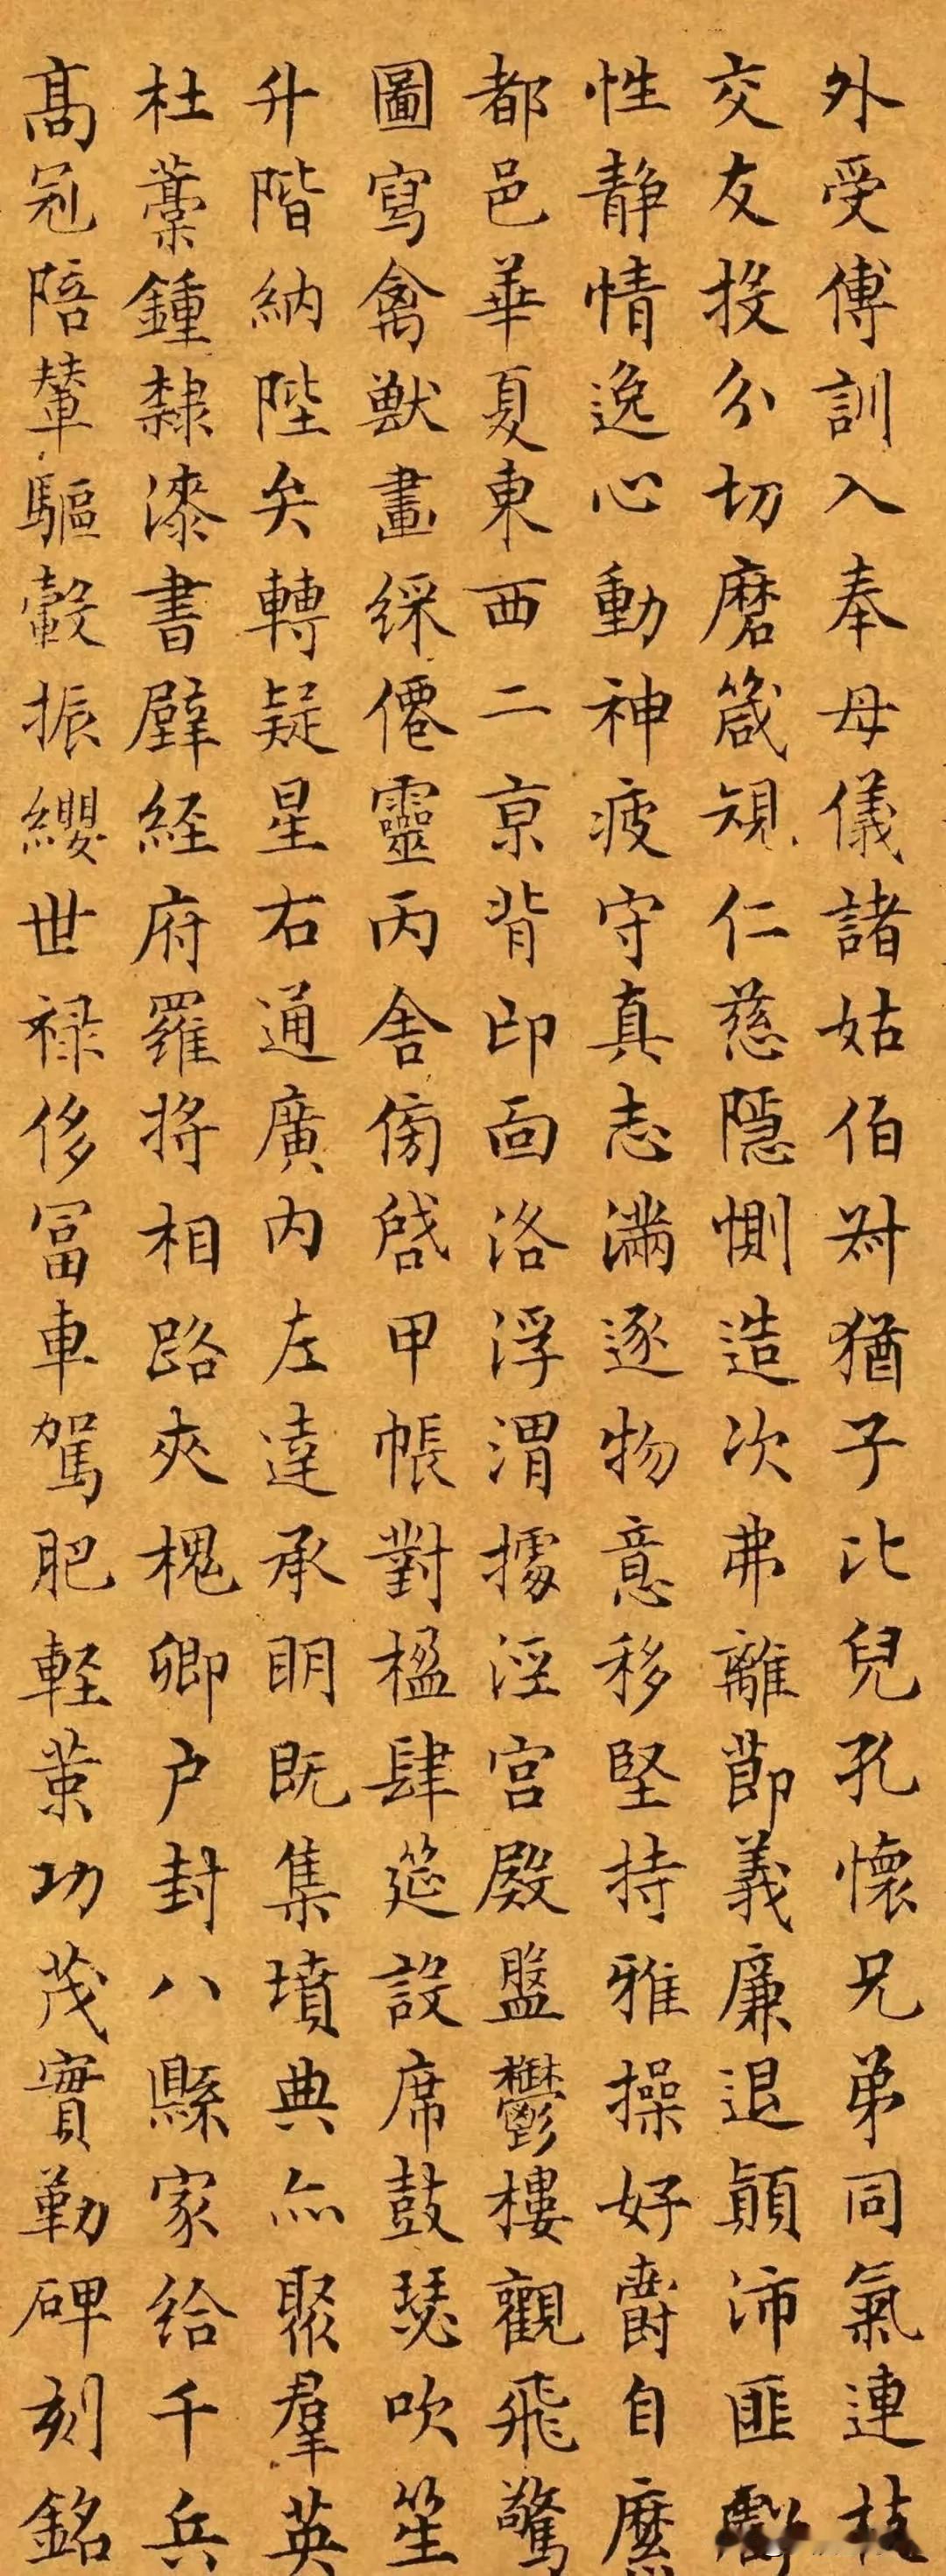 外受傅訓入奉母儀諸姑伯叔猶子比兒孔懷兄弟同氣連枝
交友投分切磨箴規仁慈隱惻造次弗離節義廉退顛沛匪虧
性靜情逸心動神疲守真志滿逐物意移堅持雅操好爵自縻
都邑華夏東西二京背邙面洛浮渭據涇宮殿盤鬱樓觀飛驚
圖寫禽獸畫綵僊靈丙舍傍啓甲帳對楹肆筵設席鼓瑟吹笙
升階納陛弁轉疑星右通廣內左達承明既集墳典亦聚羣英
杜稾鍾隸漆書壁経府羅將相路夾槐卿户封八縣家給千兵
高冠陪輦驅轂振纓世禄侈富車駕肥軽策功茂實勒碑刻銘